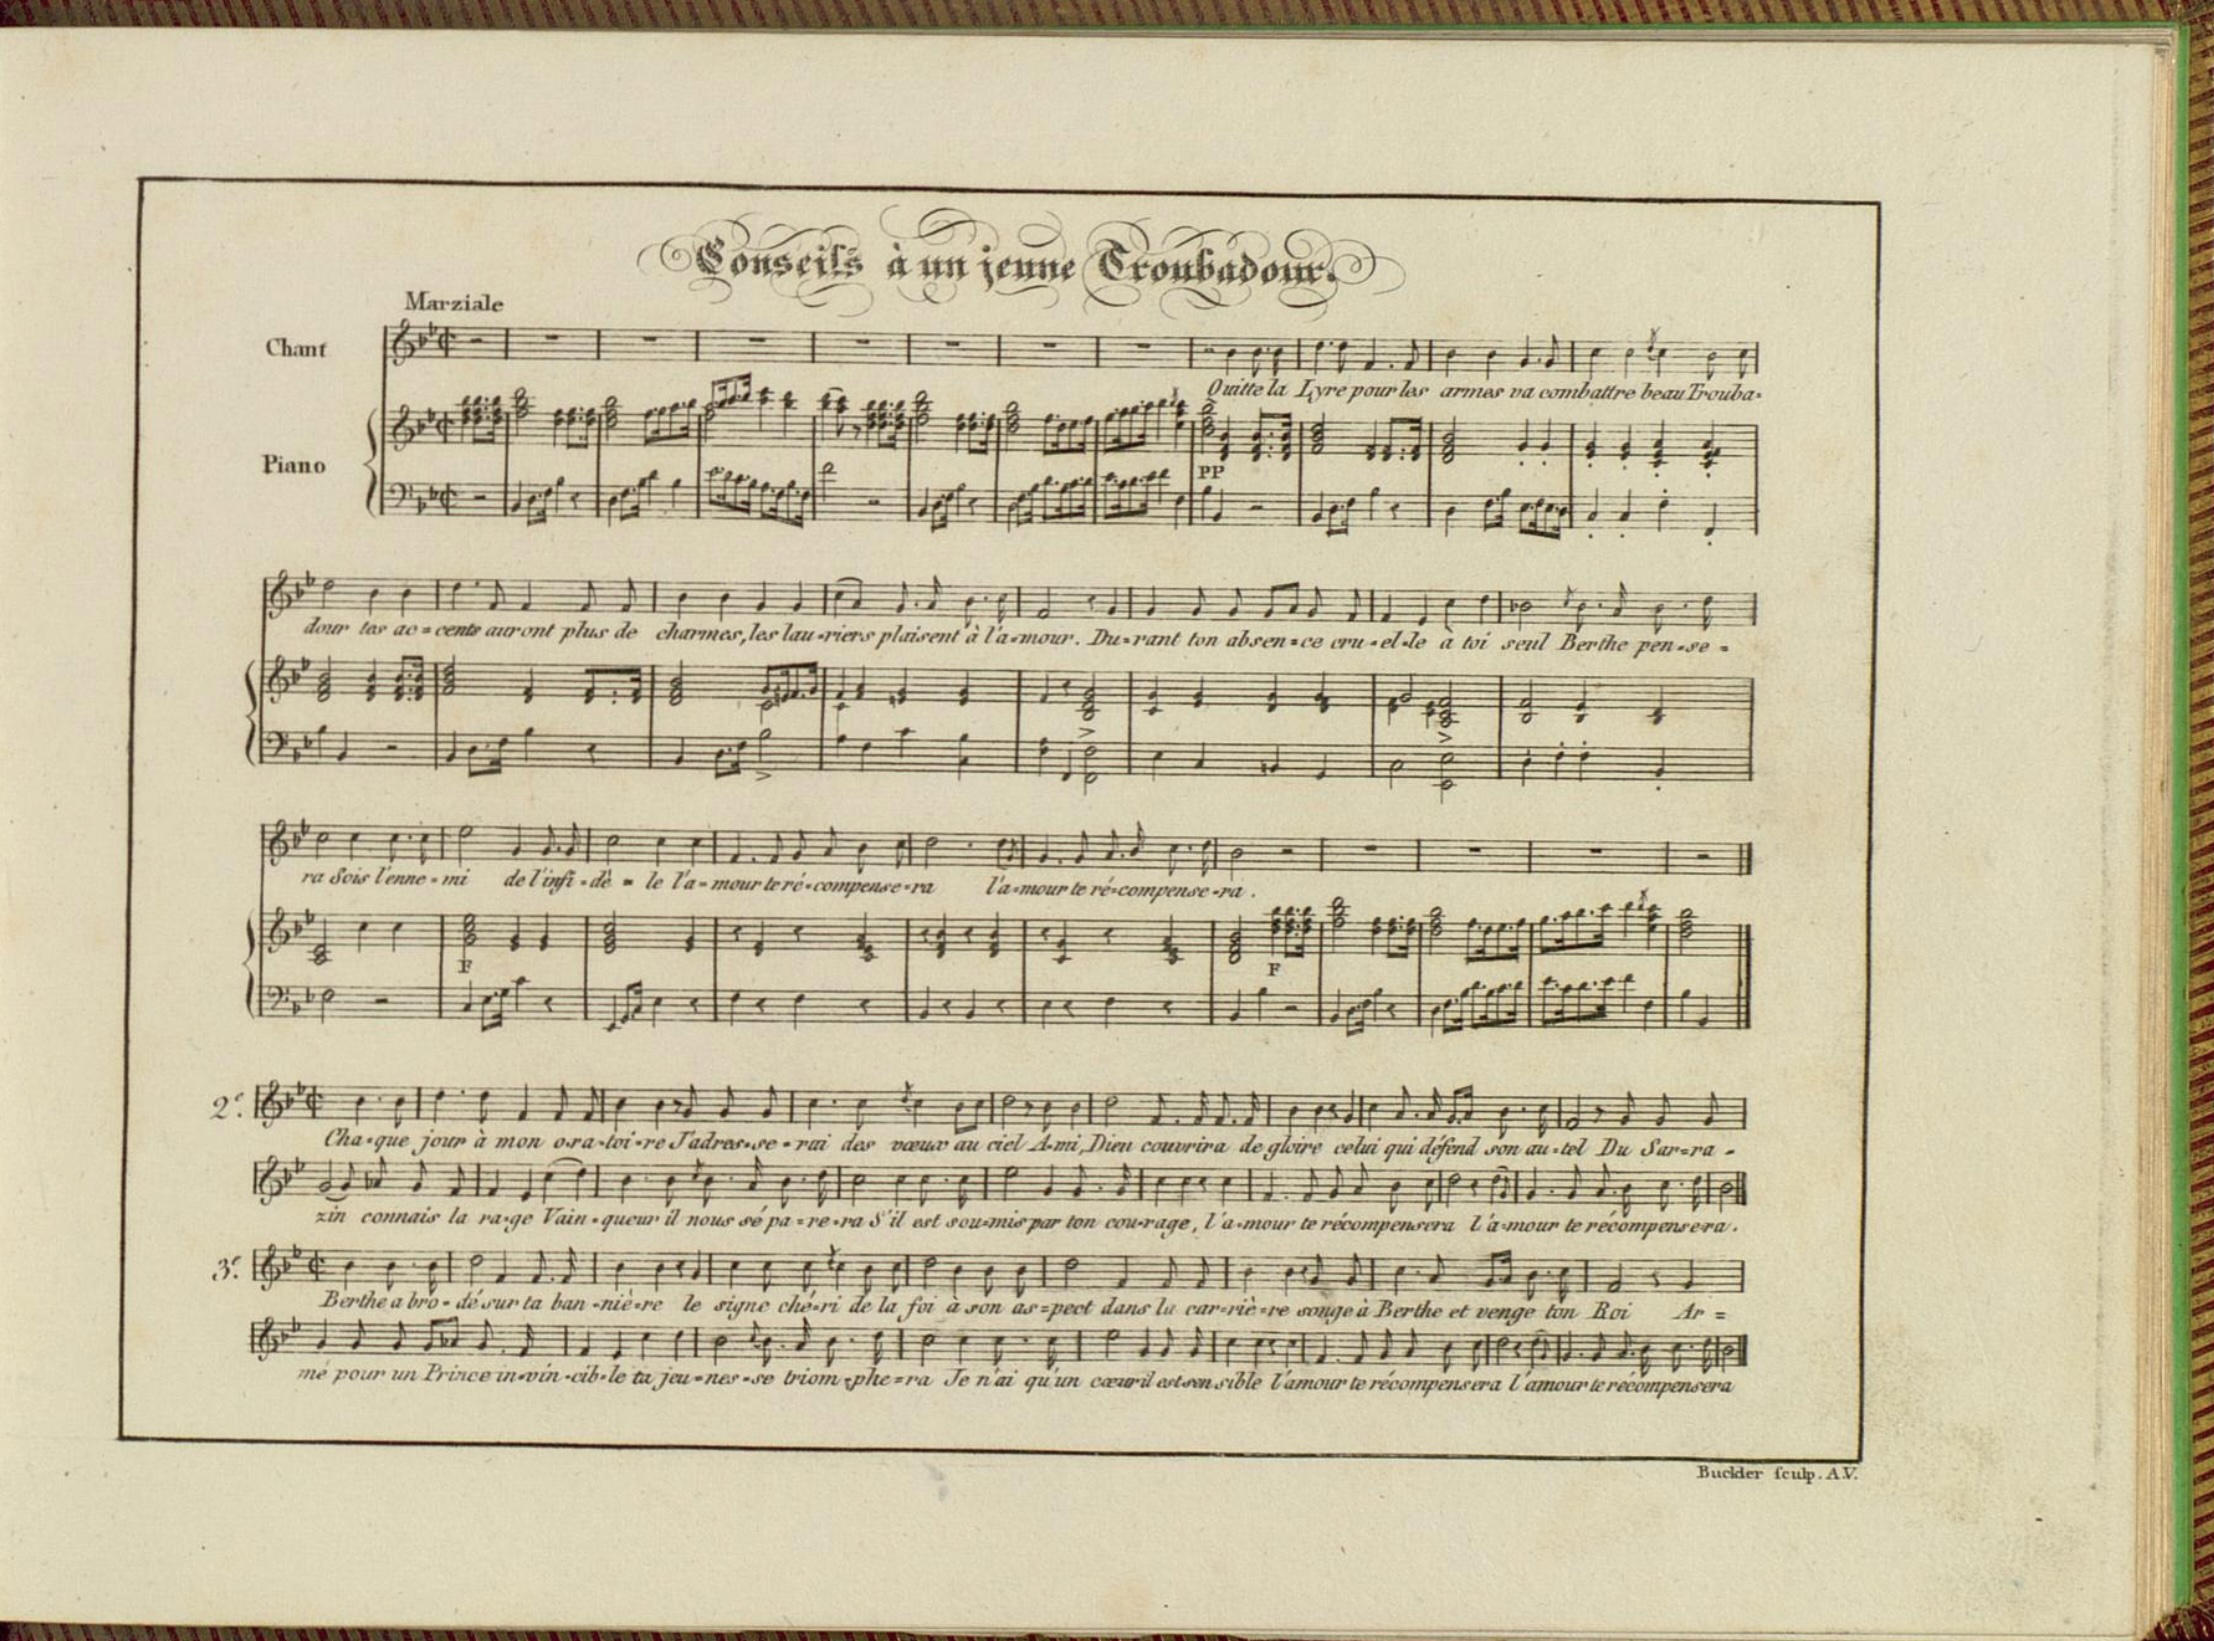 Conseils à un jeune Troubadour.
Marziale
Chant
Quitte la Lyre pour les armes va combattre beau Trouba=
Piano
PP
dour tes ac=cents auront plus de charmes, les lau=riers plaisent à l'a=mour. Du=rant ton absen=ce cru=el=le à toi seul Berthe pen=se=
ra Sois l'enne=mi de l'infi=dè=le l'a=mour te ré=compense=ra l'a=mour te ré=compense=ra.
F
F
2e. Cha=que jour à mon o=ra=toi=re J'adres=se=rai des vœux au ciel A=mi, Dieu couvrira de gloire celui qui défend son au=tel Du Sar=ra=
zin connais la ra=ge Vain=queur il nous sé pa=re=ra S'il est sou=mis par ton cou=rage, l'a=mour te récompensera l'a=mour te récompense=ra.
3e. Berthe a bro=dé sur ta ban=niè=re le signe ché=ri de la foi à son as=pect dans la car=riè=re songe à Berthe et venge ton Roi Ar=
mé pour un Prince in=vin=cib=le ta jeu=nes=se triom=phe=ra Je n'ai qu'un cœur il est sen sible l'amour te récompensera l'amour te récompensera
Buckler sculp. A.V.